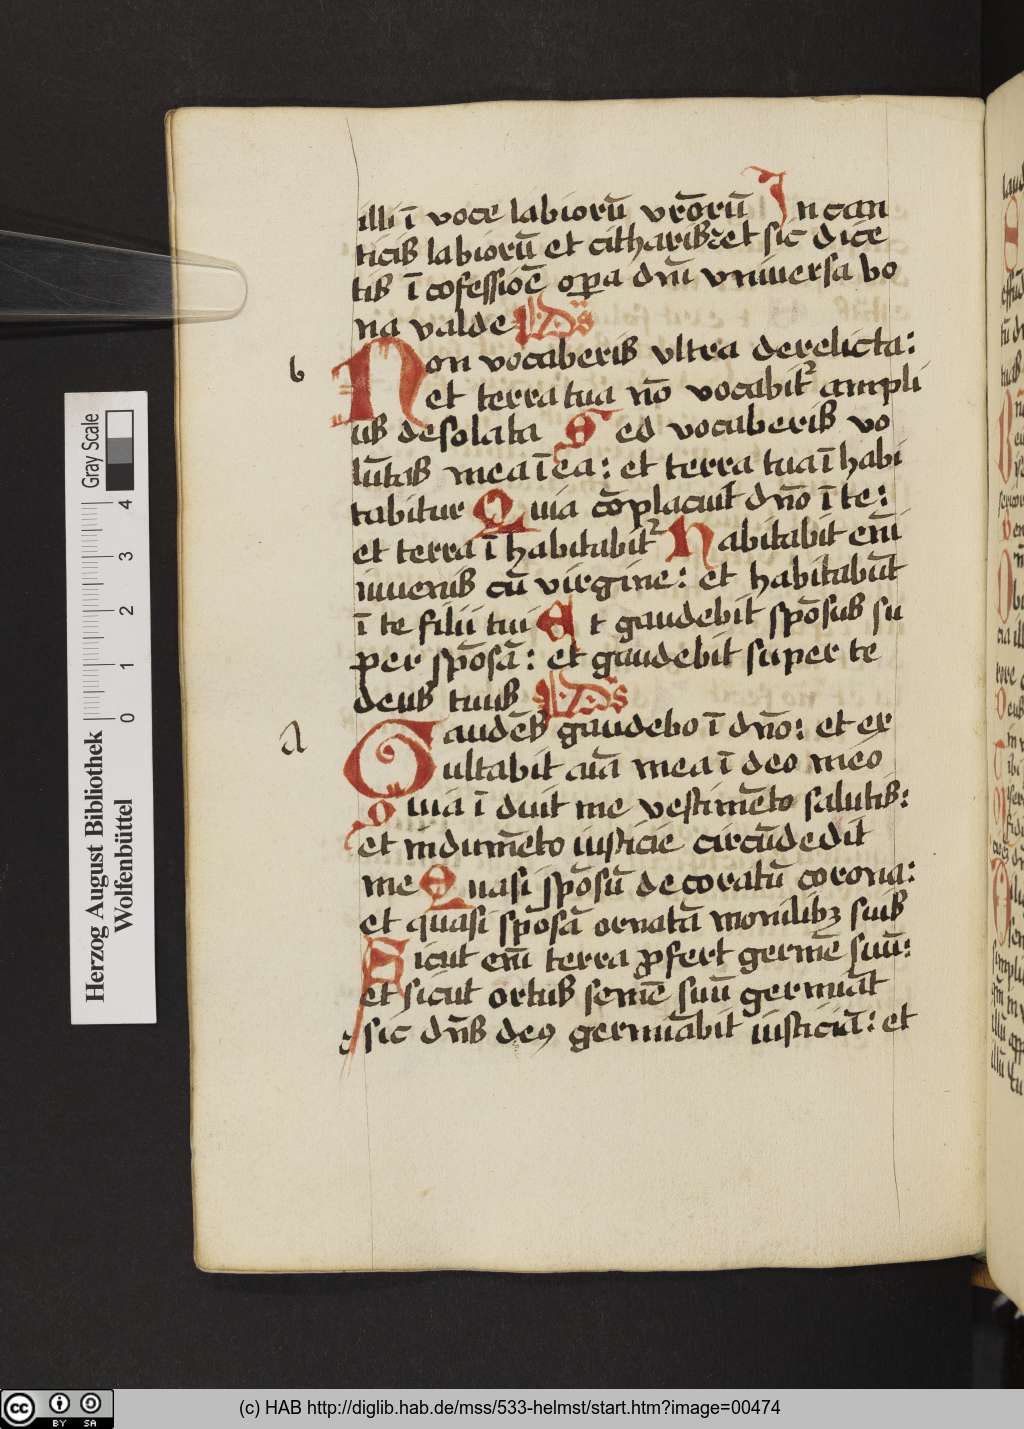 illi ī voce labiorū vr̄orū In can
ticis labiorū et citharis et sic dice
tis ī cōfessiōe opera dn̄i vniuersa bo
na valde
b
Non vocaberis vltra derelicta:
et terra tua nō vocabit᷑ ampli
us desolata Sed vocaberis vo
lūtas mea ī ea: et terra tua ī habi
tabitur Quia cōplacuit dn̄o ī te:
et terra ī habitabit᷑ Habitabit em̄
iuuenis cū virgine: et habitabūt
ī te filii tui Et gaudebit spōsus su
per spōsā: et gaudebit super te
deus tuus
a
Gaudēs gaudebo ī dn̄o: et ex
ultabit aīa mea ī deo meo
Quia īduit me vestimēto salutis:
et indumēto iusticie circūdedit
me Quasi spōsū decoratū corona:
et quasi spōsā ornatā monilibꝫ suis
Sicut em̄ terra ꝓfert germē suū:
et sicut ortus semē suū germiāt
sic dn̄s deꝰ germiabit iusticiā: et
Herzog August Bibliothek
Wolfenbüttel
0 1 2 3 4
Gray Scale
cc BY SA
(c) HAB http://diglib.hab.de/mss/533-helmst/start.htm?image=00474